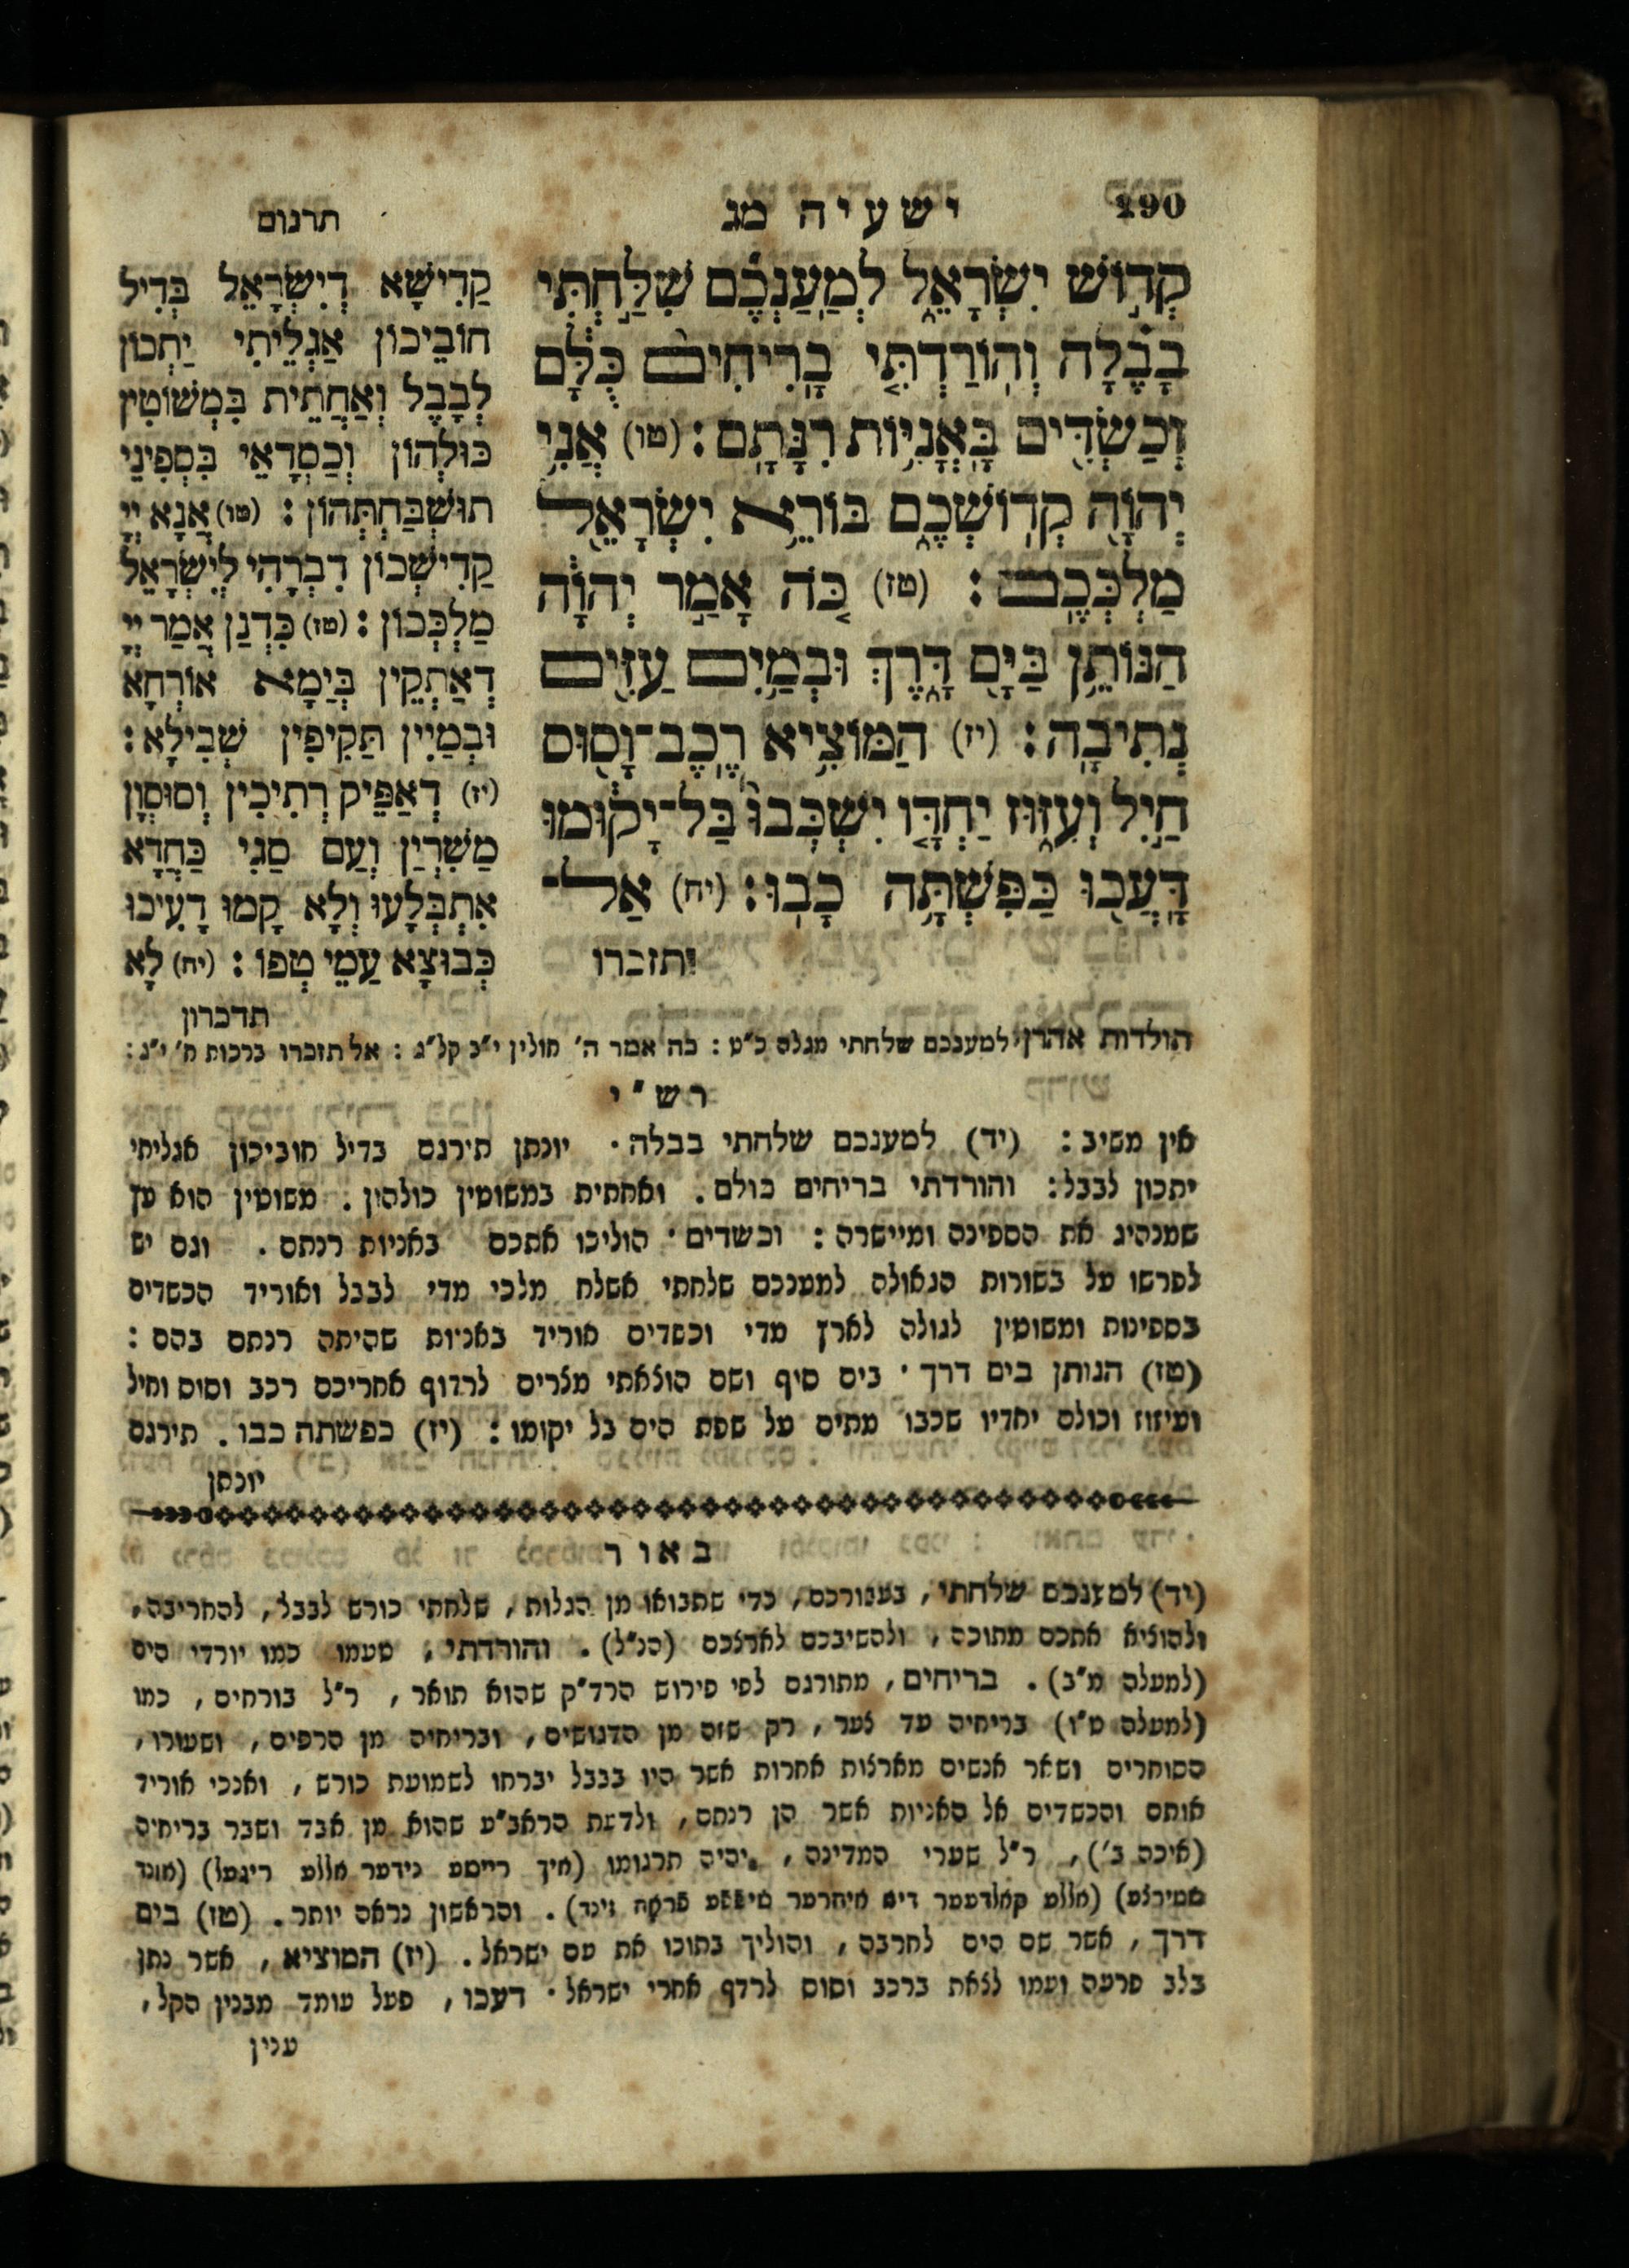 290
ישעיה מג
תרגום
קְד֣וֹשׁ יִשְׂרָאֵ֑ל לְמַֽעַנְכֶ֞ם שִׁלַּ֣חְתִּי
בָבֶ֗לָה וְהֽוֹרַדְתִּ֤י בָֽרִיחִים֙ כֻּלָּ֔ם
וְכַשְׂדִּ֖ים בָּֽאֳנִיּ֥וֹת רִנָּתָֽם׃ (טו) אֲנִ֥י
יְהוָ֖ה קְדֽוֹשְׁכֶ֑ם בּוֹרֵ֥א יִשְׂרָאֵ֖ל
מַלְכְּכֶֽם׃ (טז) כֹּ֚ה אָמַ֣ר יְהוָ֔ה
הַנּוֹתֵ֥ן בַּיָּ֖ם דָּ֑רֶךְ וּבְמַ֥יִם עַזִּ֖ים
נְתִיבָֽה׃ (יז) הַמּוֹצִ֥יא רֶֽכֶב־וָס֖וּס
חַ֣יִל וְעִזּ֑וּז יַחְדָּ֤ו יִשְׁכְּבוּ֙ בַּל־יָק֔וּמוּ
דָּעֲכ֖וּ כַּפִּשְׁתָּ֥ה כָבֽוּ׃ (יח) אַל־
תזכרו
קַדִישָׁא דְיִשְׂרָאֵל בְּדִיל
חוֹבֵיכוֹן אַגְלֵיתִי יַתְכוֹן
לְבָבֶל וְאַחֲתֵית בִּמְשׁוֹטִין
כּוּלְהוֹן וְכַסְדָאֵי בִּסְפִינֵי
תוּשְׁבַּחְתְּהוֹן׃ (טו) אֲנָא יְיָ
קַדִישְׁכוֹן דִבְרָהִי לְיִשְׂרָאֵל
מַלְכְּכוֹן׃ (טז) כִּדְנַן אֲמַר יְיָ
דְאַתְקֵין בְּיַמָא אוֹרְחָא
וּבְמַיִין תַּקִיפִין שְׁבִילָא׃
(יז) דְאַפֵּיק רְתִיכִין וְסוּסְוָן
מַשִׁרְיַן וְעַם סַגִי כַּחֲדָא
אִתְבְּלָעוּ וְלָא קָמוּ דָעִיכוּ
כְּבוּצָא עַמֵי טְפוֹ׃ (יח) לָא
תדכרון
תולדות אהרן למענכם שלחתי מגלה כ"ט : כה אמר ה' חולין י"ב קל"ג : אל תזכרו ברכות ח' י"ג :
רש"י
אין משיב : (יד) למענכם שלחתי בבלה . יונתן תירגם בדיל חוביכון אגליתי
יתכון לבבל : והורדתי בריחים כולם . ואחתית במשוטין כולהון . משוטין הוא עץ
שמנהיג את הספינה ומיישרה : וכשדים . הוליכו אתכם באניות רנתם . וגם יש
לפרשו על בשורות הגאולה למענכם שלחתי אשלח מלכי מדי לבבל ואוריד הכשדים
בספינות ומשוטין לגולה לארץ מדי וכשדים אוריד באניות שהיתה רנתם בהם :
(טז) הנותן בים דרך . בים סוף ושם הוצאתי מצרים לרדוף אחריכם רכב וסוס וחיל
ועיזוז וכולם יחדיו שכבו מתים על שפת הים בל יקומו : (יז) כפשתה כבו . תירגם
יונתן
באור
(יד) למענכם שלחתי , בעבורכם , כדי שתבואו מן הגלות , שלחתי כורש לבבל , להחריבה ,
ולהוציא אתכם מתוכה , ולהשיבכם לארצכם (הנ"ל) . והורדתי , טעמו כמו יורדי הים
(למעלה מ"ב) . בריחים , מתורגם לפי פירוש הרד"ק שהוא תואר , ר"ל בורחים , כמו
(למעלה ט"ו) בריחיה עד צער , רק שזה מן הדגושים , ובריחיה מן הרפים , ושעורו ,
הסוחרים ושאר אנשים מארצות אחרות אשר היו בבבל יברחו לשמועת כורש , ואנכי אוריד
אותם והכשדים אל האניות אשר הן רנתם , ולדעת הראב"ע שהוא מן אבד ושבר בריחיה
(איכה ב') , ר"ל שערי המדינה , יהיה תרגומו (איך רייסע נידער אללע ריגעל) (אונד
שטירצע) (אללע קאלדעער דיא איהרער שיפפע פראָה זינד) . והראשון נראה יותר . (טז) בים
דרך , אשר שם הים לחרבה , והוליך בתוכו את עם ישראל . (יז) המוציא , אשר נתן
בלב פרעה ועמו לצאת ברכב וסוס לרדף אחרי ישראל . דעכו , פעל עומד מבנין הקל ,
ענין